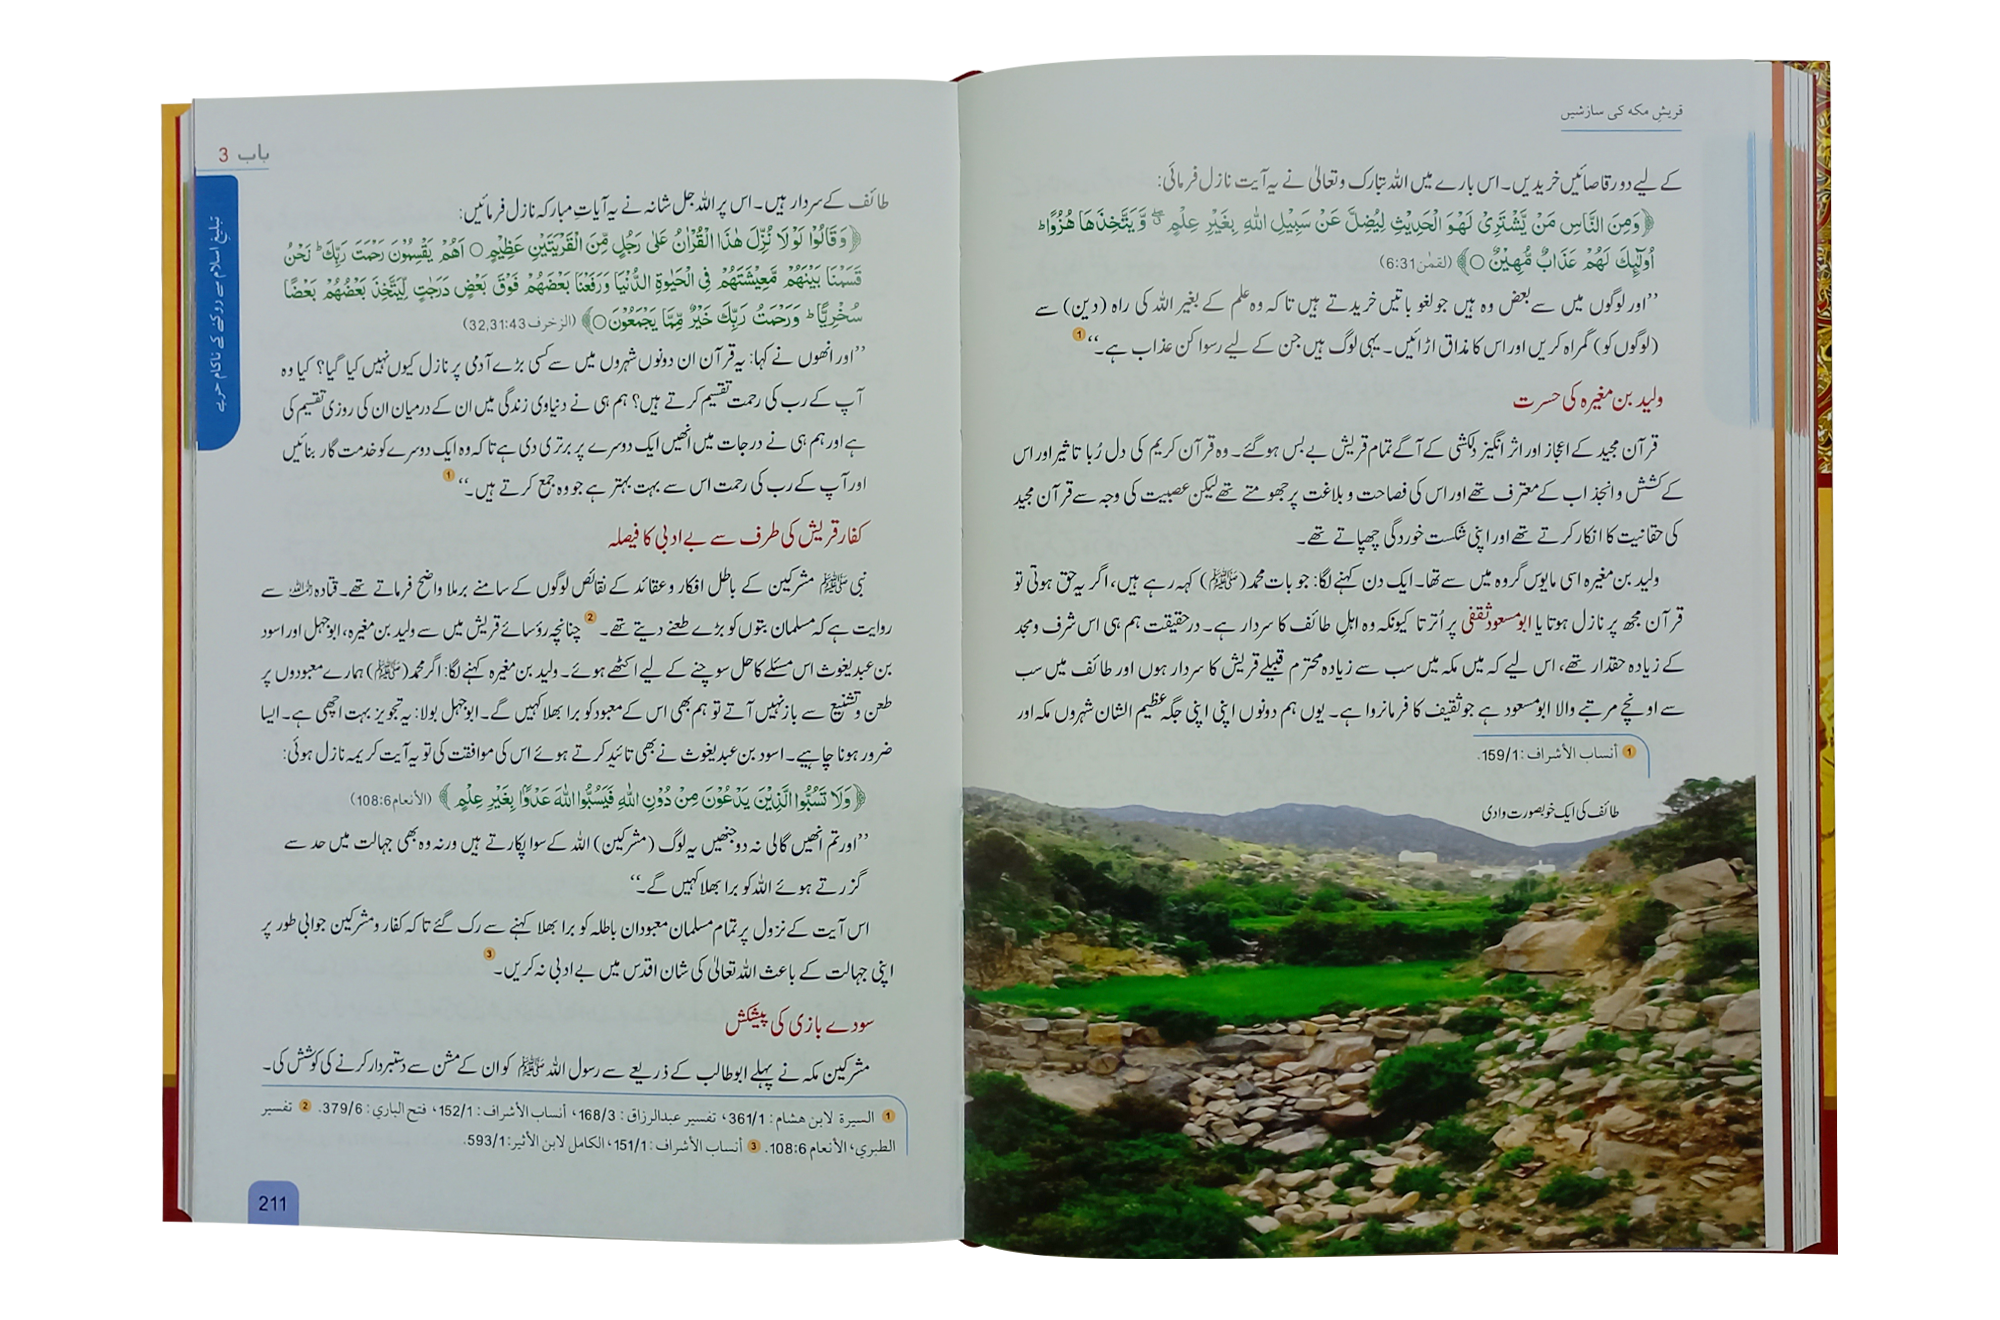 قریشِ مکہ کی سازشیں
کے لیے دو رقاصائیں خریدیں۔ اس بارے میں اللہ تبارک و تعالیٰ نے یہ آیت نازل فرمائی:
﴿وَمِنَ النَّاسِ مَنْ يَّشْتَرِيْ لَهْوَ الْحَدِيْثِ لِيُضِلَّ عَنْ سَبِيْلِ اللّٰهِ بِغَيْرِ عِلْمٍ ۖ وَّيَتَّخِذَهَا هُزُوًا ؕ
اُولٰٓئِكَ لَهُمْ عَذَابٌ مُّهِيْنٌ ○﴾ (لقمٰن 6:31)
’’اور لوگوں میں سے بعض وہ ہیں جو لغو باتیں خریدتے ہیں تاکہ وہ علم کے بغیر اللہ کی راہ (دین) سے
(لوگوں کو) گمراہ کریں اور اس کا مذاق اڑائیں۔ یہی لوگ ہیں جن کے لیے رسوا کن عذاب ہے۔‘‘ 1
ولید بن مغیرہ کی حسرت
قرآن مجید کے اعجاز اور اثر انگیز دلکشی کے آگے تمام قریش بے بس ہو گئے۔ وہ قرآن کریم کی دل رُبا تاثیر اور اس
کے کشش و انجذاب کے معترف تھے اور اس کی فصاحت و بلاغت پر جھومتے تھے لیکن عصبیت کی وجہ سے قرآن مجید
کی حقانیت کا انکار کرتے تھے اور اپنی شکست خوردگی چھپاتے تھے۔
ولید بن مغیرہ اسی مایوس گروہ میں سے تھا۔ ایک دن کہنے لگا: جو بات محمد (ﷺ) کہہ رہے ہیں، اگر یہ حق ہوتی تو
قرآن مجھ پر نازل ہوتا یا ابو مسعود ثقفی پر اُترتا کیونکہ وہ اہلِ طائف کا سردار ہے۔ درحقیقت ہم ہی اس شرف و مجد
کے زیادہ حقدار تھے، اس لیے کہ میں مکہ میں سب سے زیادہ محترم قبیلے قریش کا سردار ہوں اور طائف میں سب
سے اونچے مرتبے والا ابو مسعود ہے جو ثقیف کا فرمانروا ہے۔ یوں ہم دونوں اپنی اپنی جگہ عظیم الشان شہروں مکہ اور
1 أنساب الأشراف: 159/1.
طائف کی ایک خوبصورت وادی
باب 3
تبلیغِ اسلام سے روکنے کے ناکام حربے
طائف کے سردار ہیں۔ اس پر اللہ جل شانہ نے یہ آیاتِ مبارکہ نازل فرمائیں:
﴿وَقَالُوْا لَوْلَا نُزِّلَ هٰذَا الْقُرْاٰنُ عَلٰى رَجُلٍ مِّنَ الْقَرْيَتَيْنِ عَظِيْمٍ ○ اَهُمْ يَقْسِمُوْنَ رَحْمَتَ رَبِّكَ ؕ نَحْنُ
قَسَمْنَا بَيْنَهُمْ مَّعِيْشَتَهُمْ فِي الْحَيٰوةِ الدُّنْيَا وَرَفَعْنَا بَعْضَهُمْ فَوْقَ بَعْضٍ دَرَجٰتٍ لِّيَتَّخِذَ بَعْضُهُمْ بَعْضًا
سُخْرِيًّا ؕ وَرَحْمَتُ رَبِّكَ خَيْرٌ مِّمَّا يَجْمَعُوْنَ ○﴾ (الزخرف 32,31:43)
’’اور انھوں نے کہا: یہ قرآن ان دونوں شہروں میں سے کسی بڑے آدمی پر نازل کیوں نہیں کیا گیا؟ کیا وہ
آپ کے رب کی رحمت تقسیم کرتے ہیں؟ ہم ہی نے دنیاوی زندگی میں ان کے درمیان ان کی روزی تقسیم کی
ہے اور ہم ہی نے درجات میں انھیں ایک دوسرے پر برتری دی ہے تاکہ وہ ایک دوسرے کو خدمت گار بنائیں
اور آپ کے رب کی رحمت اس سے بہت بہتر ہے جو وہ جمع کرتے ہیں۔‘‘ 1
کفار قریش کی طرف سے بے ادبی کا فیصلہ
نبی ﷺ مشرکین کے باطل افکار و عقائد کے نقائص لوگوں کے سامنے برملا واضح فرماتے تھے۔ قتادہ رحمہ اللہ سے
روایت ہے کہ مسلمان بتوں کو بڑے طعنے دیتے تھے۔ 2 چنانچہ رؤسائے قریش میں سے ولید بن مغیرہ، ابوجہل اور اسود
بن عبد یغوث اس مسئلے کا حل سوچنے کے لیے اکٹھے ہوئے۔ ولید بن مغیرہ کہنے لگا: اگر محمد (ﷺ) ہمارے معبودوں پر
طعن و تشنیع سے باز نہیں آتے تو ہم بھی اس کے معبود کو برا بھلا کہیں گے۔ ابوجہل بولا: یہ تجویز بہت اچھی ہے۔ ایسا
ضرور ہونا چاہیے۔ اسود بن عبد یغوث نے بھی تائید کرتے ہوئے اس کی موافقت کی تو یہ آیت کریمہ نازل ہوئی:
﴿وَلَا تَسُبُّوا الَّذِيْنَ يَدْعُوْنَ مِنْ دُوْنِ اللّٰهِ فَيَسُبُّوا اللّٰهَ عَدْوًۢا بِغَيْرِ عِلْمٍ﴾ (الأنعام 108:6)
’’اور تم انھیں گالی نہ دو جنھیں یہ لوگ (مشرکین) اللہ کے سوا پکارتے ہیں ورنہ وہ بھی جہالت میں حد سے
گزرتے ہوئے اللہ کو برا بھلا کہیں گے۔‘‘
اس آیت کے نزول پر تمام مسلمان معبودان باطلہ کو برا بھلا کہنے سے رک گئے تاکہ کفار و مشرکین جوابی طور پر
اپنی جہالت کے باعث اللہ تعالیٰ کی شان اقدس میں بے ادبی نہ کریں۔ 3
سودے بازی کی پیشکش
مشرکین مکہ نے پہلے ابو طالب کے ذریعے سے رسول اللہ ﷺ کو ان کے مشن سے دستبردار کرنے کی کوشش کی۔
1 السيرة لابن هشام: 361/1، تفسير عبدالرزاق: 168/3، أنساب الأشراف: 152/1، فتح الباري: 379/6. 2 تفسير
الطبري، الأنعام 108:6. 3 أنساب الأشراف: 151/1، الكامل لابن الأثير: 593/1.
211